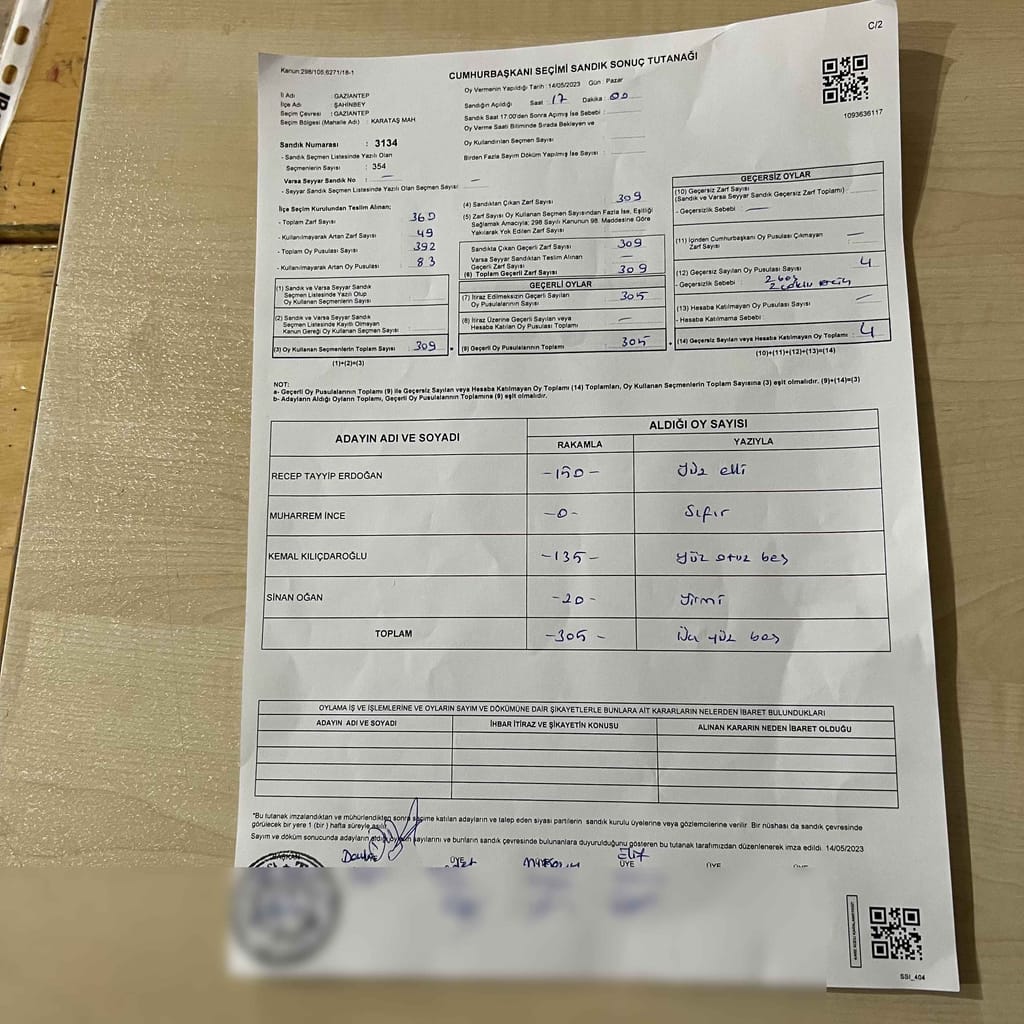 C/2
Kanun:298/105,6271/18-1
CUMHURBAŞKANI SEÇİMİ SANDIK SONUÇ TUTANAĞI
1093636117
İl Adı : GAZİANTEP
İlçe Adı : ŞAHİNBEY
Seçim Çevresi : GAZİANTEP
Seçim Bölgesi (Mahalle Adı) : KARATAŞ MAH
Sandık Numarası : 3134
- Sandık Seçmen Listesinde Yazılı Olan
Seçmenlerin Sayısı : 354
Varsa Seyyar Sandık No : —
- Seyyar Sandık Seçmen Listesinde Yazılı Olan Seçmen Sayısı : —
Oy Vermenin Yapıldığı Tarih : 14/05/2023 Gün : Pazar
Sandığın Açıldığı Saat : 17 Dakika : 00
Sandık Saat 17:00'den Sonra Açılmış İse Sebebi :
Oy Verme Saati Bitiminde Sırada Bekleyen ve
Oy Kullandırılan Seçmen Sayısı :
Birden Fazla Sayım Döküm Yapılmış İse Sayısı :
İlçe Seçim Kurulundan Teslim Alınan;
- Toplam Zarf Sayısı : 360
- Kullanılmayarak Artan Zarf Sayısı : 49
- Toplam Oy Pusulası Sayısı : 392
- Kullanılmayarak Artan Oy Pusulası : 83
(1) Sandık ve Varsa Seyyar Sandık
Seçmen Listesinde Yazılı Olup
Oy Kullanan Seçmenlerin Sayısı :
(2) Sandık ve Varsa Seyyar Sandık
Seçmen Listesinde Kayıtlı Olmayan
Kanun Gereği Oy Kullanan Seçmen Sayısı :
(3) Oy Kullanan Seçmenlerin Toplam Sayısı : 309
(1)+(2)=(3)
(4) Sandıktan Çıkan Zarf Sayısı : 309
(5) Zarf Sayısı Oy Kullanan Seçmen Sayısından Fazla İse, Eşitliği
Sağlamak Amacıyla; 298 Sayılı Kanunun 98. Maddesine Göre
Yakılarak Yok Edilen Zarf Sayısı :
Sandıkta Çıkan Geçerli Zarf Sayısı : 309
Varsa Seyyar Sandıktan Teslim Alınan
Geçerli Zarf Sayısı : —
(6) Toplam Geçerli Zarf Sayısı : 309
GEÇERLİ OYLAR
(7) İtiraz Edilmeksizin Geçerli Sayılan
Oy Pusulalarının Sayısı : 305
(8) İtiraz Üzerine Geçerli Sayılan veya
Hesaba Katılan Oy Pusulası Toplamı : —
(9) Geçerli Oy Pusulalarının Toplamı : 305
GEÇERSİZ OYLAR
(10) Geçersiz Zarf Sayısı
(Sandık ve Varsa Seyyar Sandık Geçersiz Zarf Toplamı) :
- Geçersizlik Sebebi : —
(11) İçinden Cumhurbaşkanı Oy Pusulası Çıkmayan
Zarf Sayısı : —
(12) Geçersiz Sayılan Oy Pusulası Sayısı : 4
- Geçersizlik Sebebi : 2 boş
(13) Hesaba Katılmayan Oy Pusulası Sayısı : —
- Hesaba Katılmama Sebebi :
(14) Geçersiz Sayılan veya Hesaba Katılmayan Oy Toplamı : 4
(10)+(11)+(12)+(13)=(14)
NOT:
a- Geçerli Oy Pusulalarının Toplamı (9) ile Geçersiz Sayılan veya Hesaba Katılmayan Oy Toplamı (14) Toplamları, Oy Kullanan Seçmenlerin Toplam Sayısına (3) eşit olmalıdır. (9)+(14)=(3)
b- Adayların Aldığı Oyların Toplamı, Geçerli Oy Pusulalarının Toplamına (9) eşit olmalıdır.
ADAYIN ADI VE SOYADI ALDIĞI OY SAYISI
RAKAMLA YAZIYLA
RECEP TAYYİP ERDOĞAN -150- Yüz elli
MUHARREM İNCE -0- Sıfır
KEMAL KILIÇDAROĞLU -135- Yüz otuz beş
SİNAN OĞAN -20- Yirmi
TOPLAM -305- Üç yüz beş
OYLAMA İŞ VE İŞLEMLERİNE VE OYLARIN SAYIM VE DÖKÜMÜNE DAİR ŞİKAYETLERLE BUNLARA AİT KARARLARIN NELERDEN İBARET BULUNDUKLARI
ADAYIN ADI VE SOYADI İHBAR İTİRAZ VE ŞİKAYETİN KONUSU ALINAN KARARIN NEDEN İBARET OLDUĞU
"Bu tutanak imzalandıktan ve mühürlendikten sonra seçime katılan adayların ve talep eden siyasi partilerin sandık kurulu üyelerine veya gözlemcilerine verilir. Bir nüshası da sandık çevresinde
görülecek bir yere 1 (bir) hafta süreyle asılır.
Sayım ve döküm sonucunda adayların aldığı oyların sayılarını ve bunların sandık çevresinde bulunanlara duyurulduğunu gösteren bu tutanak tarafımızdan düzenlenerek imza edildi. 14/05/2023
BAŞKAN ÜYE ÜYE ÜYE ÜYE
Elif
SSI_404